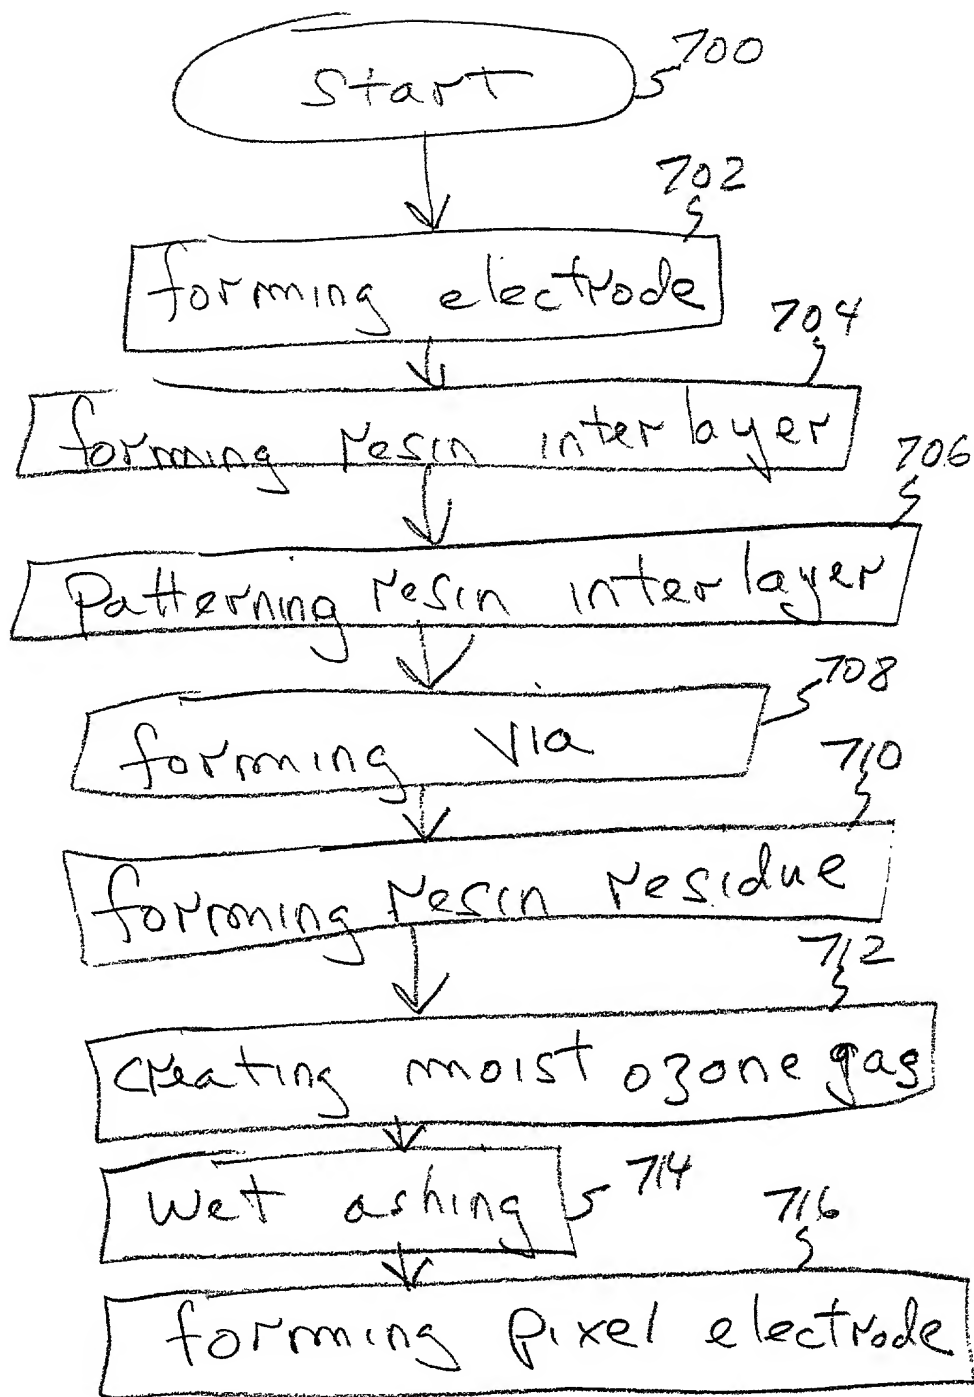 700
Start
702
forming electrode
704
forming resin interlayer
706
Patterning resin interlayer
708
forming via
710
forming resin residue
712
creating moist ozone gas
wet ashing 714
716
forming pixel electrode